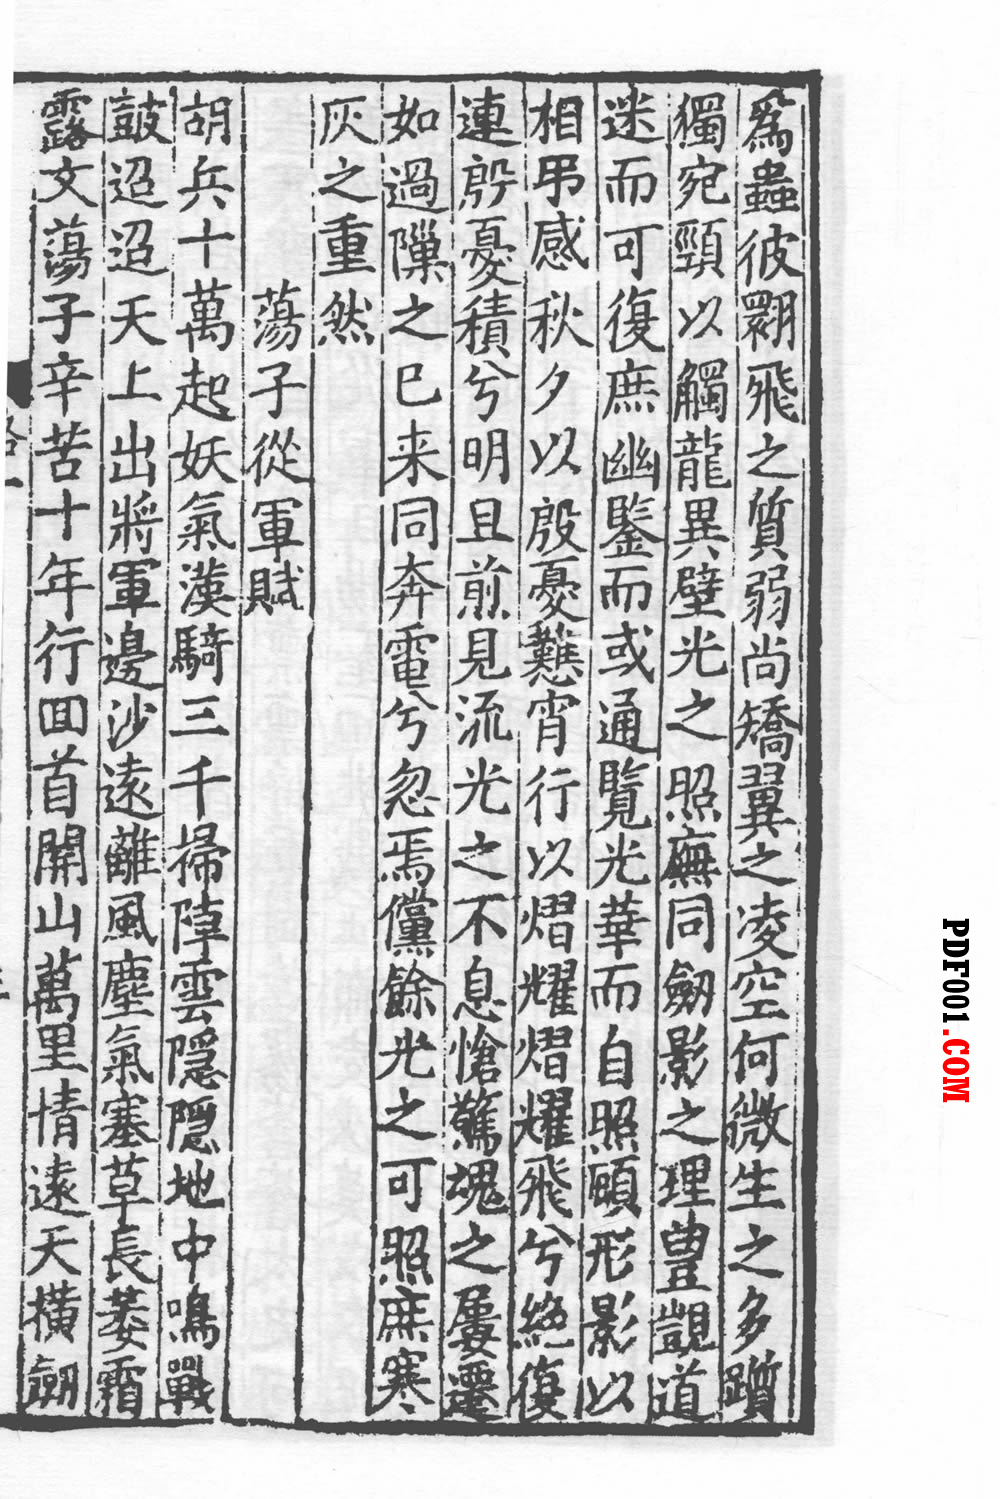 爲蟲彼翾飛之質弱尚矯翼之凌空何微生之多躓
獨宛頸以觸龍異壁光之照廡同劒影之理豊覬道
迷而可復庶幽鑒而或通覽光華而自照顧形影以
相弔感秋夕以殷憂歎宵行以熠耀熠耀飛兮絶復
連殷憂積兮明且煎見流光之不息愴驚魂之屢遷
如過隟之已来同奔電兮忽焉儻餘光之可照庶寒
灰之重然
蕩子從軍賦
胡兵十萬起妖氣漢騎三千掃陣雲隱隱地中鳴戰
鼓迢迢天上出將軍邊沙遠離風塵氣塞草長萎霜
露文蕩子辛苦十年行回首關山萬里情遠天橫劒
PDF001.COM